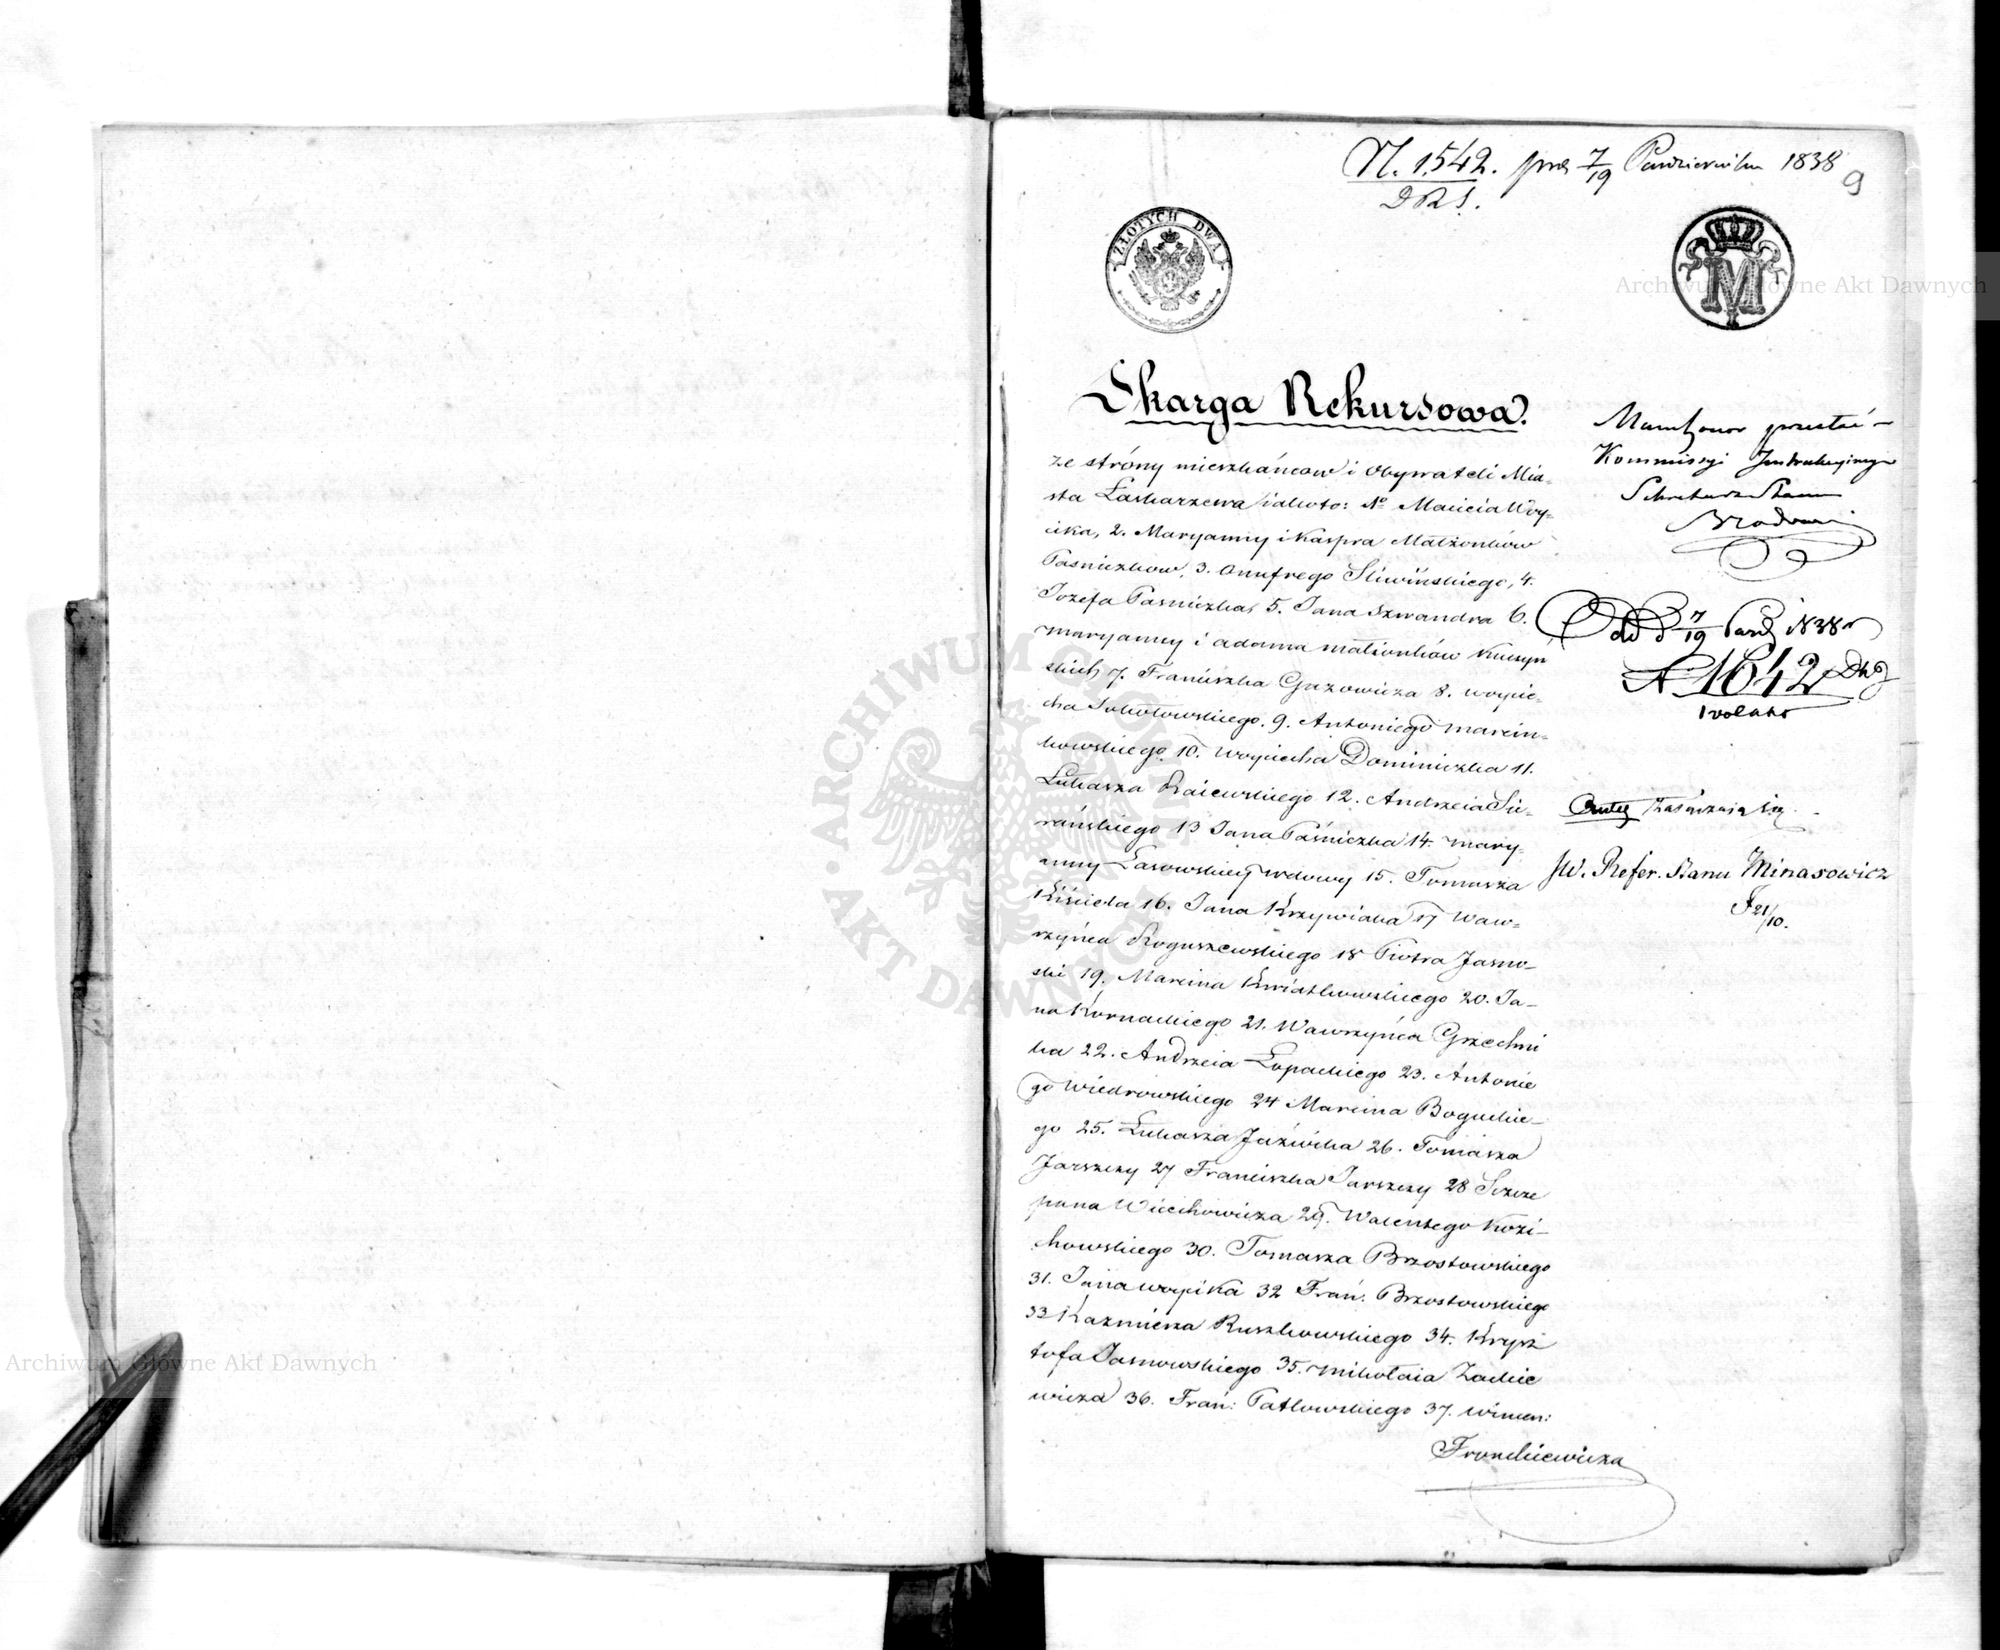 N. 1542. prez 7/19 Października 1838
9
D R S.
ZŁOTYCH DWA
M
Skarga Rekursowa.
ze stróny mieszkańcow i Obywateli Mia-
sta Łaskarzewa iakoto: No Macieia Woy-
cika, 2. Maryanny i Kaspra Małżonków
Paśniczkow, 3. Onufrego Sliwińskiego, 4.
Jozefa Pasniczka, 5. Jana Szwandra 6.
Maryanny i adama małżonków Kuczyń
skich 7. Franciszka Gazowicza 8. Woycie-
cha Sokołowskiego. 9. Antoniego Marcin-
kowskiego 10. Woyciecha Dominiczka 11.
Łukasza Raiewskiego 12. Andrzeia Sie-
rańskiego 13 Jana Paśniczka 14. Mary-
anny Łasowskiey wdowy 15. Tomasza
Kiściela 16. Jana Krzywiaka 17 Waw-
rzyńca Roguszewskiego 18 Piotra Jasno-
ski 19. Marcina Kwiatkowskiego 20. Ja-
na Kornackiego 21. Wawrzyńca Grzechni
ka 22. Andrzeia Łopackiego 23. Antonie
go Wiedrowskiego 24 Marcina Boguckie-
go 25. Łukasza Jaźwika 26. Tomasza
Jarszczy 27 Franciszka Jarszczy 28 Szcze
pana Wiechowicza 29. Walentego Kozi-
chowskiego 30. Tomasza Brzostowskiego
31. Jana Woycika 32 Fran: Brzostowskiego
33 Kazmierza Ruszkowskiego 34. Krysz
tofa Jasnowskiego 35. Mikołaia Zackie
wicza 36. Fran: Patkowskiego 37. Wincen:
Fronckiewicza
Mam honor przesłać
Kommissyi Instrukcyiney
Sekretarz Stanu
Od d 7/19 Paźd 1838 r
N 1642
Akta załączaią się.
JW. Refer. Stanu Minasowicz
21/10.
Archiwum Główne Akt Dawnych
ARCHIWUM GŁÓWNE AKT DAWNYCH
Archiwum Główne Akt Dawnych